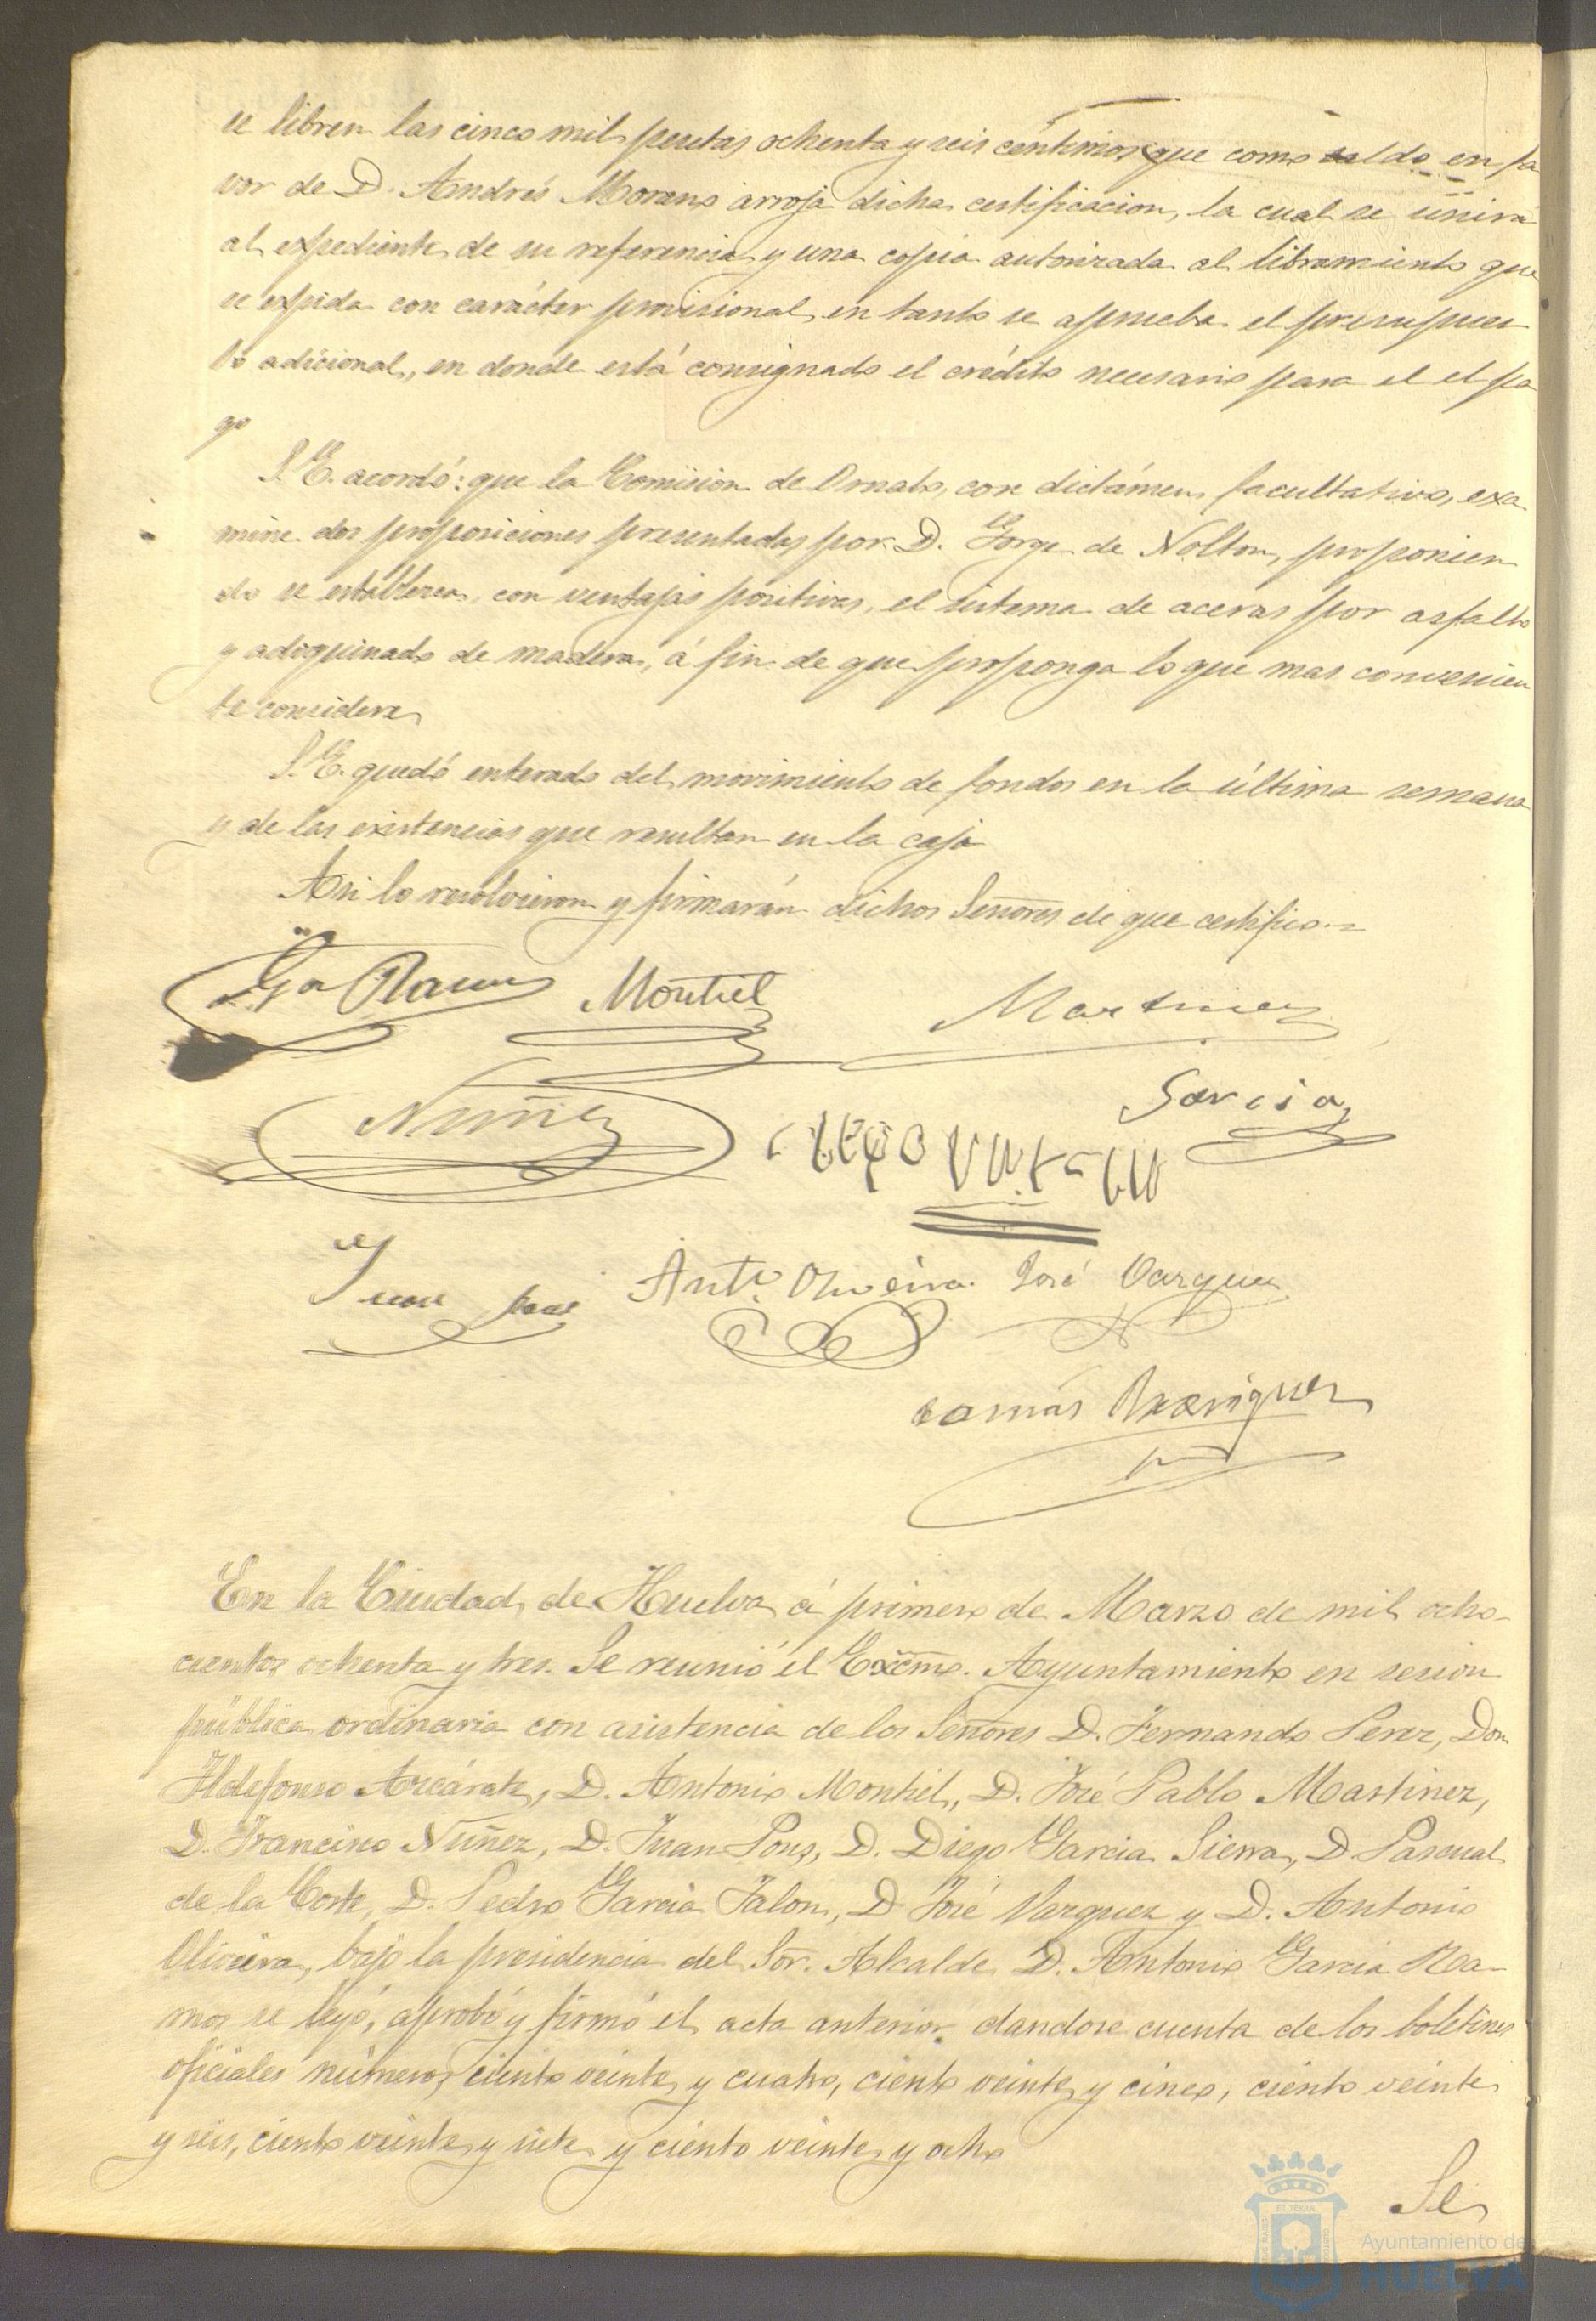 se libren las cinco mil pesetas ochenta y seis céntimos que como saldo en fa
vor de D. Andrés Moreno arroja dicha certificacion, la cual se unirá
al expediente de su referencia y una copia autorizada al libramiento que
se expida con carácter provisional, en tanto se aprueba el presupues
to adicional, en donde está consignado el crédito necesario para el el pa
go
S.E. acordó: que la Comision de Ornato, con dictámen facultativo, exa
mine dos proposiciones presentadas por D. Jorge de Nolton, proponien
do se establezca, con ventajas positivas, el sistema de aceras por asfalto
y adoquinado de madera, á fin de que proponga lo que mas convenien
te considere
S.E. quedó enterado del movimiento de fondos en la última semana
y de las existencias que resultan en la caja
Asi lo resolvieron y firmarán dichos Señores de que certifico.=
Gª Ramos Montiel Martinez
Nuñez Garcia
Juan Pons Antº Oliveira José Vazquez
Tomás Rodriguez
En la Ciudad de Huelva á primero de Marzo de mil ocho-
cientos ochenta y tres. Se reunió el Excmo. Ayuntamiento en sesion
pública ordinaria con asistencia de los Señores D. Fernando Perez, Don
Ildefonso Azcárate, D. Antonio Montiel, D. José Pablo Martinez,
D. Francisco Nuñez, D. Juan Pons, D. Diego Garcia Sierra, D. Pascual
de la Corte, D. Pedro Garcia Jalon, D. José Vazquez y D. Antonio
Oliveira, bajo la presidencia del Sor. Alcalde D. Antonio Garcia Ra-
mos se leyó, aprobó y firmó el acta anterior dandose cuenta de los boletines
oficiales números ciento veinte y cuatro, ciento veinte y cinco, ciento veinte
y seis, ciento veinte y siete y ciento veinte y ocho
Se
Ayuntamiento de
HUELVA